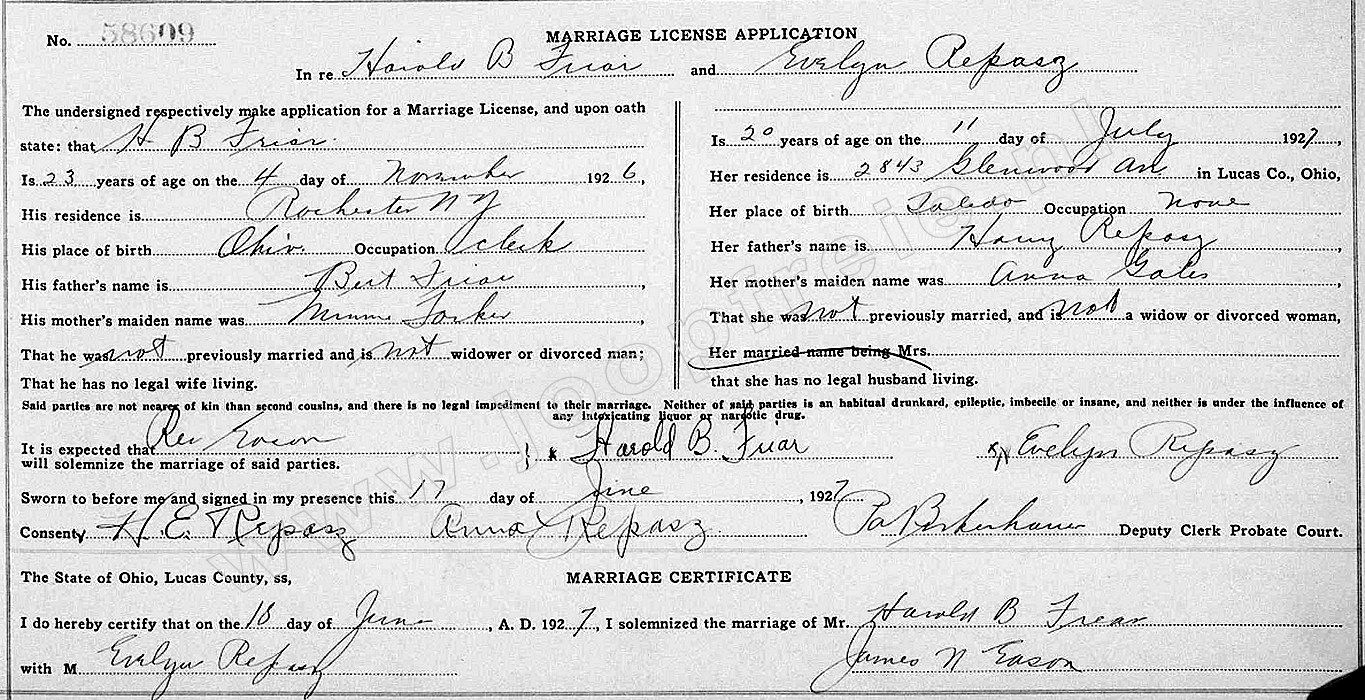 No. 58609
MARRIAGE LICENSE APPLICATION
In re Harold B Friar and Evelyn Repasz
The undersigned respectively make application for a Marriage License, and upon oath
state: that H B Friar
Is 23 years of age on the 4 day of November 1926,
His residence is Rochester N Y
His place of birth Ohio. Occupation clerk
His father's name is Bert Friar,
His mother's maiden name was Minnie Forker,
That he was not previously married and is not widower or divorced man;
That he has no legal wife living.
Is 20 years of age on the 11 day of July 1927,
Her residence is 2843 Glenwood Av in Lucas Co., Ohio,
Her place of birth Toledo Occupation none
Her father's name is Harry Repasz,
Her mother's maiden name was Anna Gales,
That she was not previously married, and is not a widow or divorced woman,
Her married name being Mrs.
that she has no legal husband living.
Said parties are not nearer of kin than second cousins, and there is no legal impediment to their marriage. Neither of said parties is an habitual drunkard, epileptic, imbecile or insane, and neither is under the influence of
any intoxicating liquor or narcotic drug.
It is expected that Rev Eason
will solemnize the marriage of said parties.
x Harold B. Friar
x Evelyn Repasz
Sworn to before me and signed in my presence this 17 day of June, 1927
Consent H. E. Repasz Anna Repasz
Deputy Clerk Probate Court.
The State of Ohio, Lucas County, ss,
MARRIAGE CERTIFICATE
I do hereby certify that on the 18 day of June, A. D. 1927, I solemnized the marriage of Mr. Harold B Frear
with M Evelyn Repasz
James N Eason
www.joopfreie.nl